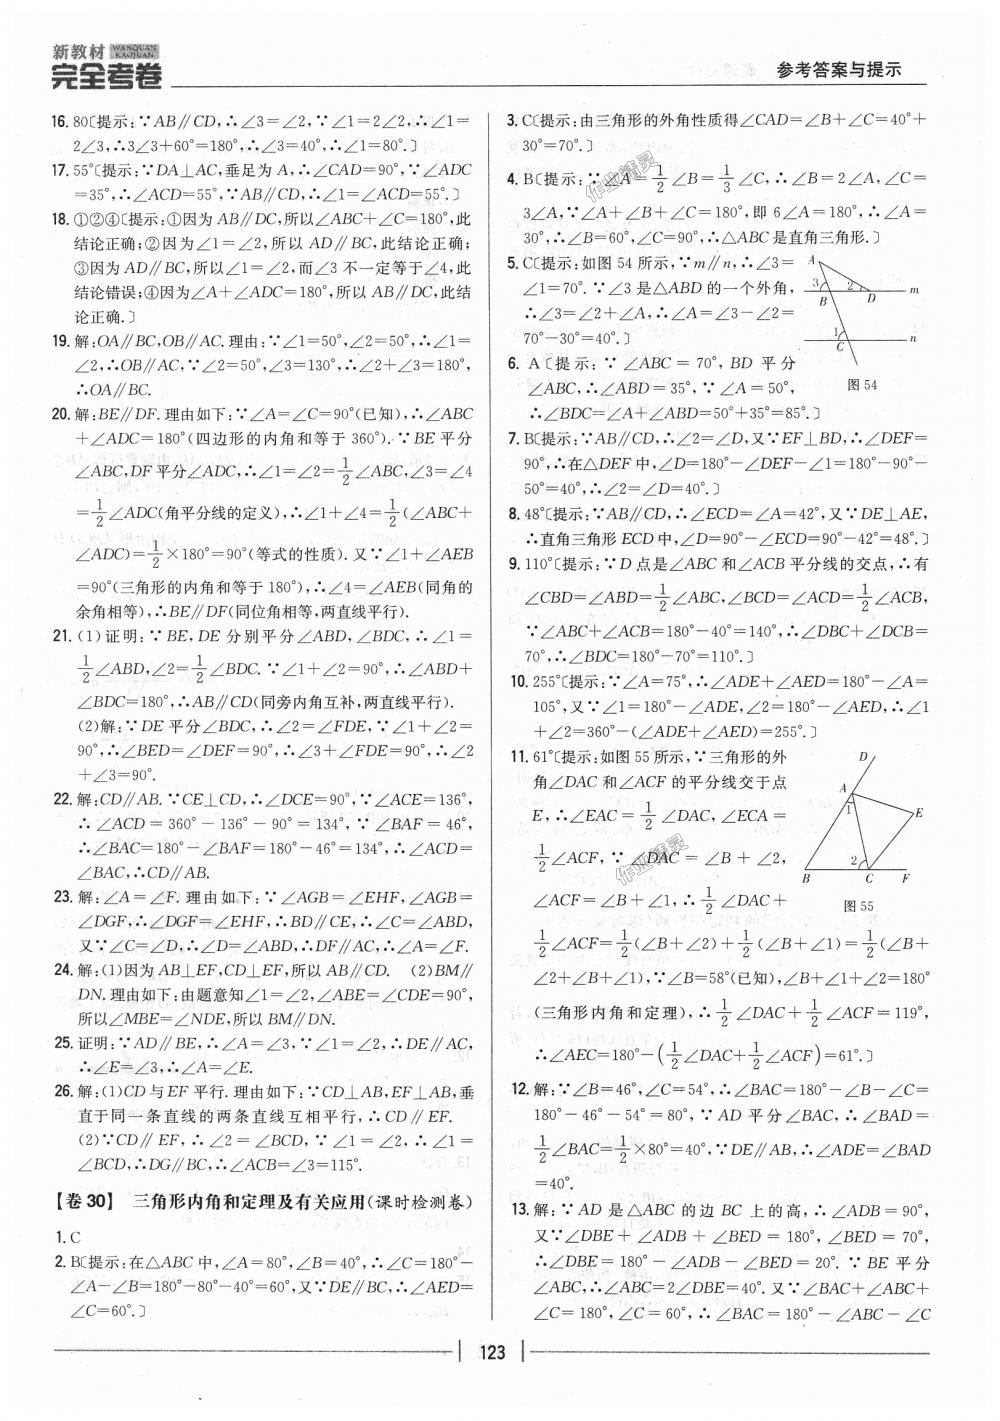 新教材 WANQUAN KAOJUAN
完全考卷
参考答案与提示
16. 80〔提示:∵AB∥CD,∴∠3=∠2,∵∠1=2∠2,∴∠1=
2∠3,∴3∠3+60°=180°,∴∠3=40°,∴∠1=80°.〕
17. 55°〔提示:∵DA⊥AC,垂足为 A,∴∠CAD=90°,∵∠ADC
=35°,∴∠ACD=55°,∵AB∥CD,∴∠1=∠ACD=55°.〕
18. ①②④〔提示:①因为 AB∥DC,所以∠ABC+∠C=180°,此
结论正确;②因为∠1=∠2,所以 AD∥BC,此结论正确;
③因为 AD∥BC,所以∠1=∠2,而∠3 不一定等于∠4,此
结论错误;④因为∠A+∠ADC=180°,所以 AB∥DC,此结
论正确.〕
19. 解:OA∥BC,OB∥AC.理由:∵∠1=50°,∠2=50°,∴∠1=
∠2,∴OB∥AC,∵∠2=50°,∠3=130°,∴∠2+∠3=180°,
∴OA∥BC.
20. 解:BE∥DF.理由如下:∵∠A=∠C=90°(已知),∴∠ABC
+∠ADC=180°(四边形的内角和等于 360°).∵BE 平分
∠ABC,DF 平分∠ADC,∴∠1=∠2=1/2∠ABC,∠3=∠4
=1/2∠ADC(角平分线的定义),∴∠1+∠4=1/2(∠ABC+
∠ADC)=1/2×180°=90°(等式的性质).又∵∠1+∠AEB
=90°(三角形的内角和等于 180°),∴∠4=∠AEB(同角的
余角相等),∴BE∥DF(同位角相等,两直线平行).
21. (1)证明:∵BE,DE 分别平分∠ABD,∠BDC,∴∠1=
1/2∠ABD,∠2=1/2∠BDC.∵∠1+∠2=90°,∴∠ABD+
∠BDC=180°,∴AB∥CD(同旁内角互补,两直线平行).
(2)解:∵DE 平分∠BDC,∴∠2=∠FDE,∵∠1+∠2=
90°,∴∠BED=∠DEF=90°,∴∠3+∠FDE=90°,∴∠2
+∠3=90°.
22. 解:CD∥AB.∵CE⊥CD,∴∠DCE=90°,∵∠ACE=136°,
∴∠ACD=360°-136°-90°=134°,∵∠BAF=46°,
∴∠BAC=180°-∠BAF=180°-46°=134°,∴∠ACD=
∠BAC,∴CD∥AB.
23. 解:∠A=∠F.理由如下:∵∠AGB=∠EHF,∠AGB=
∠DGF,∴∠DGF=∠EHF,∴BD∥CE,∴∠C=∠ABD,
又∵∠C=∠D,∴∠D=∠ABD,∴DF∥AC,∴∠A=∠F.
24. 解:(1)因为 AB⊥EF,CD⊥EF,所以 AB∥CD. (2)BM∥
DN.理由如下:由题意知∠1=∠2,∠ABE=∠CDE=90°,
所以∠MBE=∠NDE,所以 BM∥DN.
25. 证明:∵AD∥BE,∴∠A=∠3,∵∠1=∠2,∴DE∥AC,
∴∠E=∠3,∴∠A=∠E.
26. 解:(1)CD 与 EF 平行.理由如下:∵CD⊥AB,EF⊥AB,垂
直于同一条直线的两条直线互相平行,∴CD∥EF.
(2)∵CD∥EF,∴∠2=∠BCD,∵∠1=∠2,∴∠1=
∠BCD,∴DG∥BC,∴∠ACB=∠3=115°.
【卷 30】 三角形内角和定理及有关应用(课时检测卷)
1. C
2. B〔提示:在△ABC 中,∠A=80°,∠B=40°,∴∠C=180°-
∠A-∠B=180°-80°-40°=60°,又∵DE∥BC,∴∠AED=
∠C=60°.〕
3. C〔提示:由三角形的外角性质得∠CAD=∠B+∠C=40°+
30°=70°.〕
4. B〔提示:∵∠A=1/2∠B=1/3∠C,∴∠B=2∠A,∠C=
3∠A,∵∠A+∠B+∠C=180°,即 6∠A=180°,∴∠A=
30°,∴∠B=60°,∠C=90°,∴△ABC 是直角三角形.〕
5. C〔提示:如图 54 所示,∵m∥n,∴∠3=
∠1=70°.∵∠3 是△ABD 的一个外角,
∴∠3=∠2+∠A,∴∠A=∠3-∠2=
70°-30°=40°.〕
A
3 2 m
B D
1 n
C
图 54
6. A〔提示:∵∠ABC=70°,BD 平分
∠ABC,∴∠ABD=35°,∵∠A=50°,
∴∠BDC=∠A+∠ABD=50°+35°=85°.〕
7. B〔提示:∵AB∥CD,∴∠2=∠D,又∵EF⊥BD,∴∠DEF=
90°,∴在△DEF 中,∠D=180°-∠DEF-∠1=180°-90°-
50°=40°,∴∠2=∠D=40°.〕
8. 48°〔提示:∵AB∥CD,∴∠ECD=∠A=42°,又∵DE⊥AE,
∴直角三角形 ECD 中,∠D=90°-∠ECD=90°-42°=48°.〕
9. 110°〔提示:∵D 点是∠ABC 和∠ACB 平分线的交点,∴有
∠CBD=∠ABD=1/2∠ABC,∠BCD=∠ACD=1/2∠ACB,
∵∠ABC+∠ACB=180°-40°=140°,∴∠DBC+∠DCB=
70°,∴∠BDC=180°-70°=110°.〕
10. 255°〔提示:∵∠A=75°,∴∠ADE+∠AED=180°-∠A=
105°,又∵∠1=180°-∠ADE,∠2=180°-∠AED,∴∠1
+∠2=360°-(∠ADE+∠AED)=255°.〕
11. 61°〔提示:如图 55 所示,∵三角形的外
角∠DAC 和∠ACF 的平分线交于点
E,∴∠EAC=1/2∠DAC,∠ECA=
1/2∠ACF,∵∠DAC=∠B+∠2,
∠ACF=∠B+∠1,∴1/2∠DAC+
D
A
1 E
2
B C F
图 55
1/2∠ACF=1/2(∠B+∠2)+1/2(∠B+∠1)=1/2(∠B+
∠2+∠B+∠1),∵∠B=58°(已知),∠B+∠1+∠2=180°
(三角形内角和定理),∴1/2∠DAC+1/2∠ACF=119°,
∴∠AEC=180°-(1/2∠DAC+1/2∠ACF)=61°.〕
12. 解:∵∠B=46°,∠C=54°,∴∠BAC=180°-∠B-∠C=
180°-46°-54°=80°,∵AD 平分∠BAC,∴∠BAD=
1/2∠BAC=1/2×80°=40°,∵DE∥AB,∴∠ADE=∠BAD
=40°.
13. 解:∵AD 是△ABC 的边 BC 上的高,∴∠ADB=90°,
又∵∠DBE+∠ADB+∠BED=180°,∠BED=70°,
∴∠DBE=180°-∠ADB-∠BED=20°.∵BE 平分
∠ABC,∴∠ABC=2∠DBE=40°.又∵∠BAC+∠ABC+
∠C=180°,∠C=60°,∴∠BAC=180°-∠ABC-∠C
123
作业精灵
作业精灵